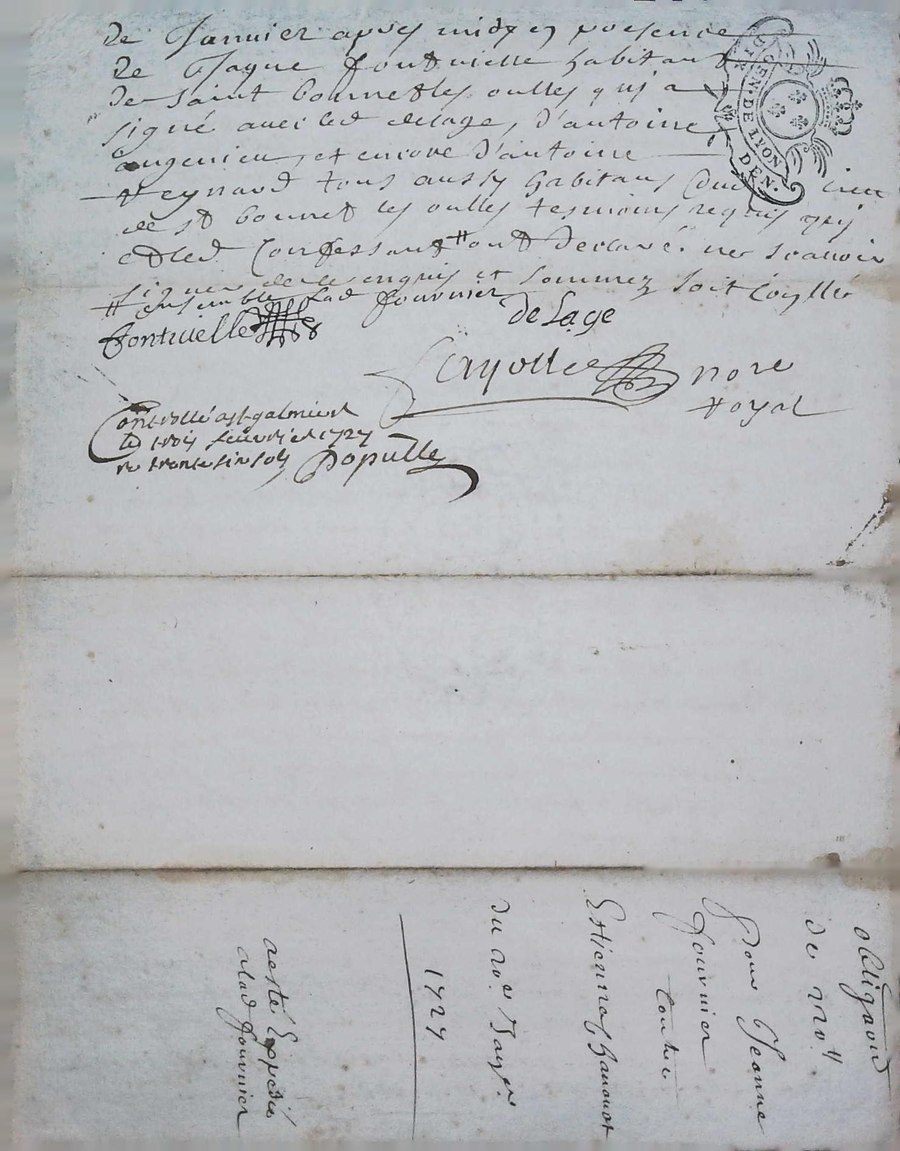 de Janvier apres midy en presence
de Jaque fontvielle habitant
de saint bonnet les oulles qui a
signé avec led delage, d'antoine
angenieu, et encore d'antoine
Reynaud tous aussy habitans dud lieu
de st bonnet les oulles tesmoins requis qui
et led Confessant # ont declaré ne scavoir
signer de ce enquis et sommez soit Coyllé
# ensemble lad fournier
fontvielle
deLage
Coyollée nore
Royal
GEN. DE LYON
DEN.
Controllé a st galmier
le trois feuvrier 1727
re trente six sols Populle
obligaon
de
Pour Jeanne
fournier
Contre
Estienne
du 20e Janr.
1727
acste Expedié
alad fournier